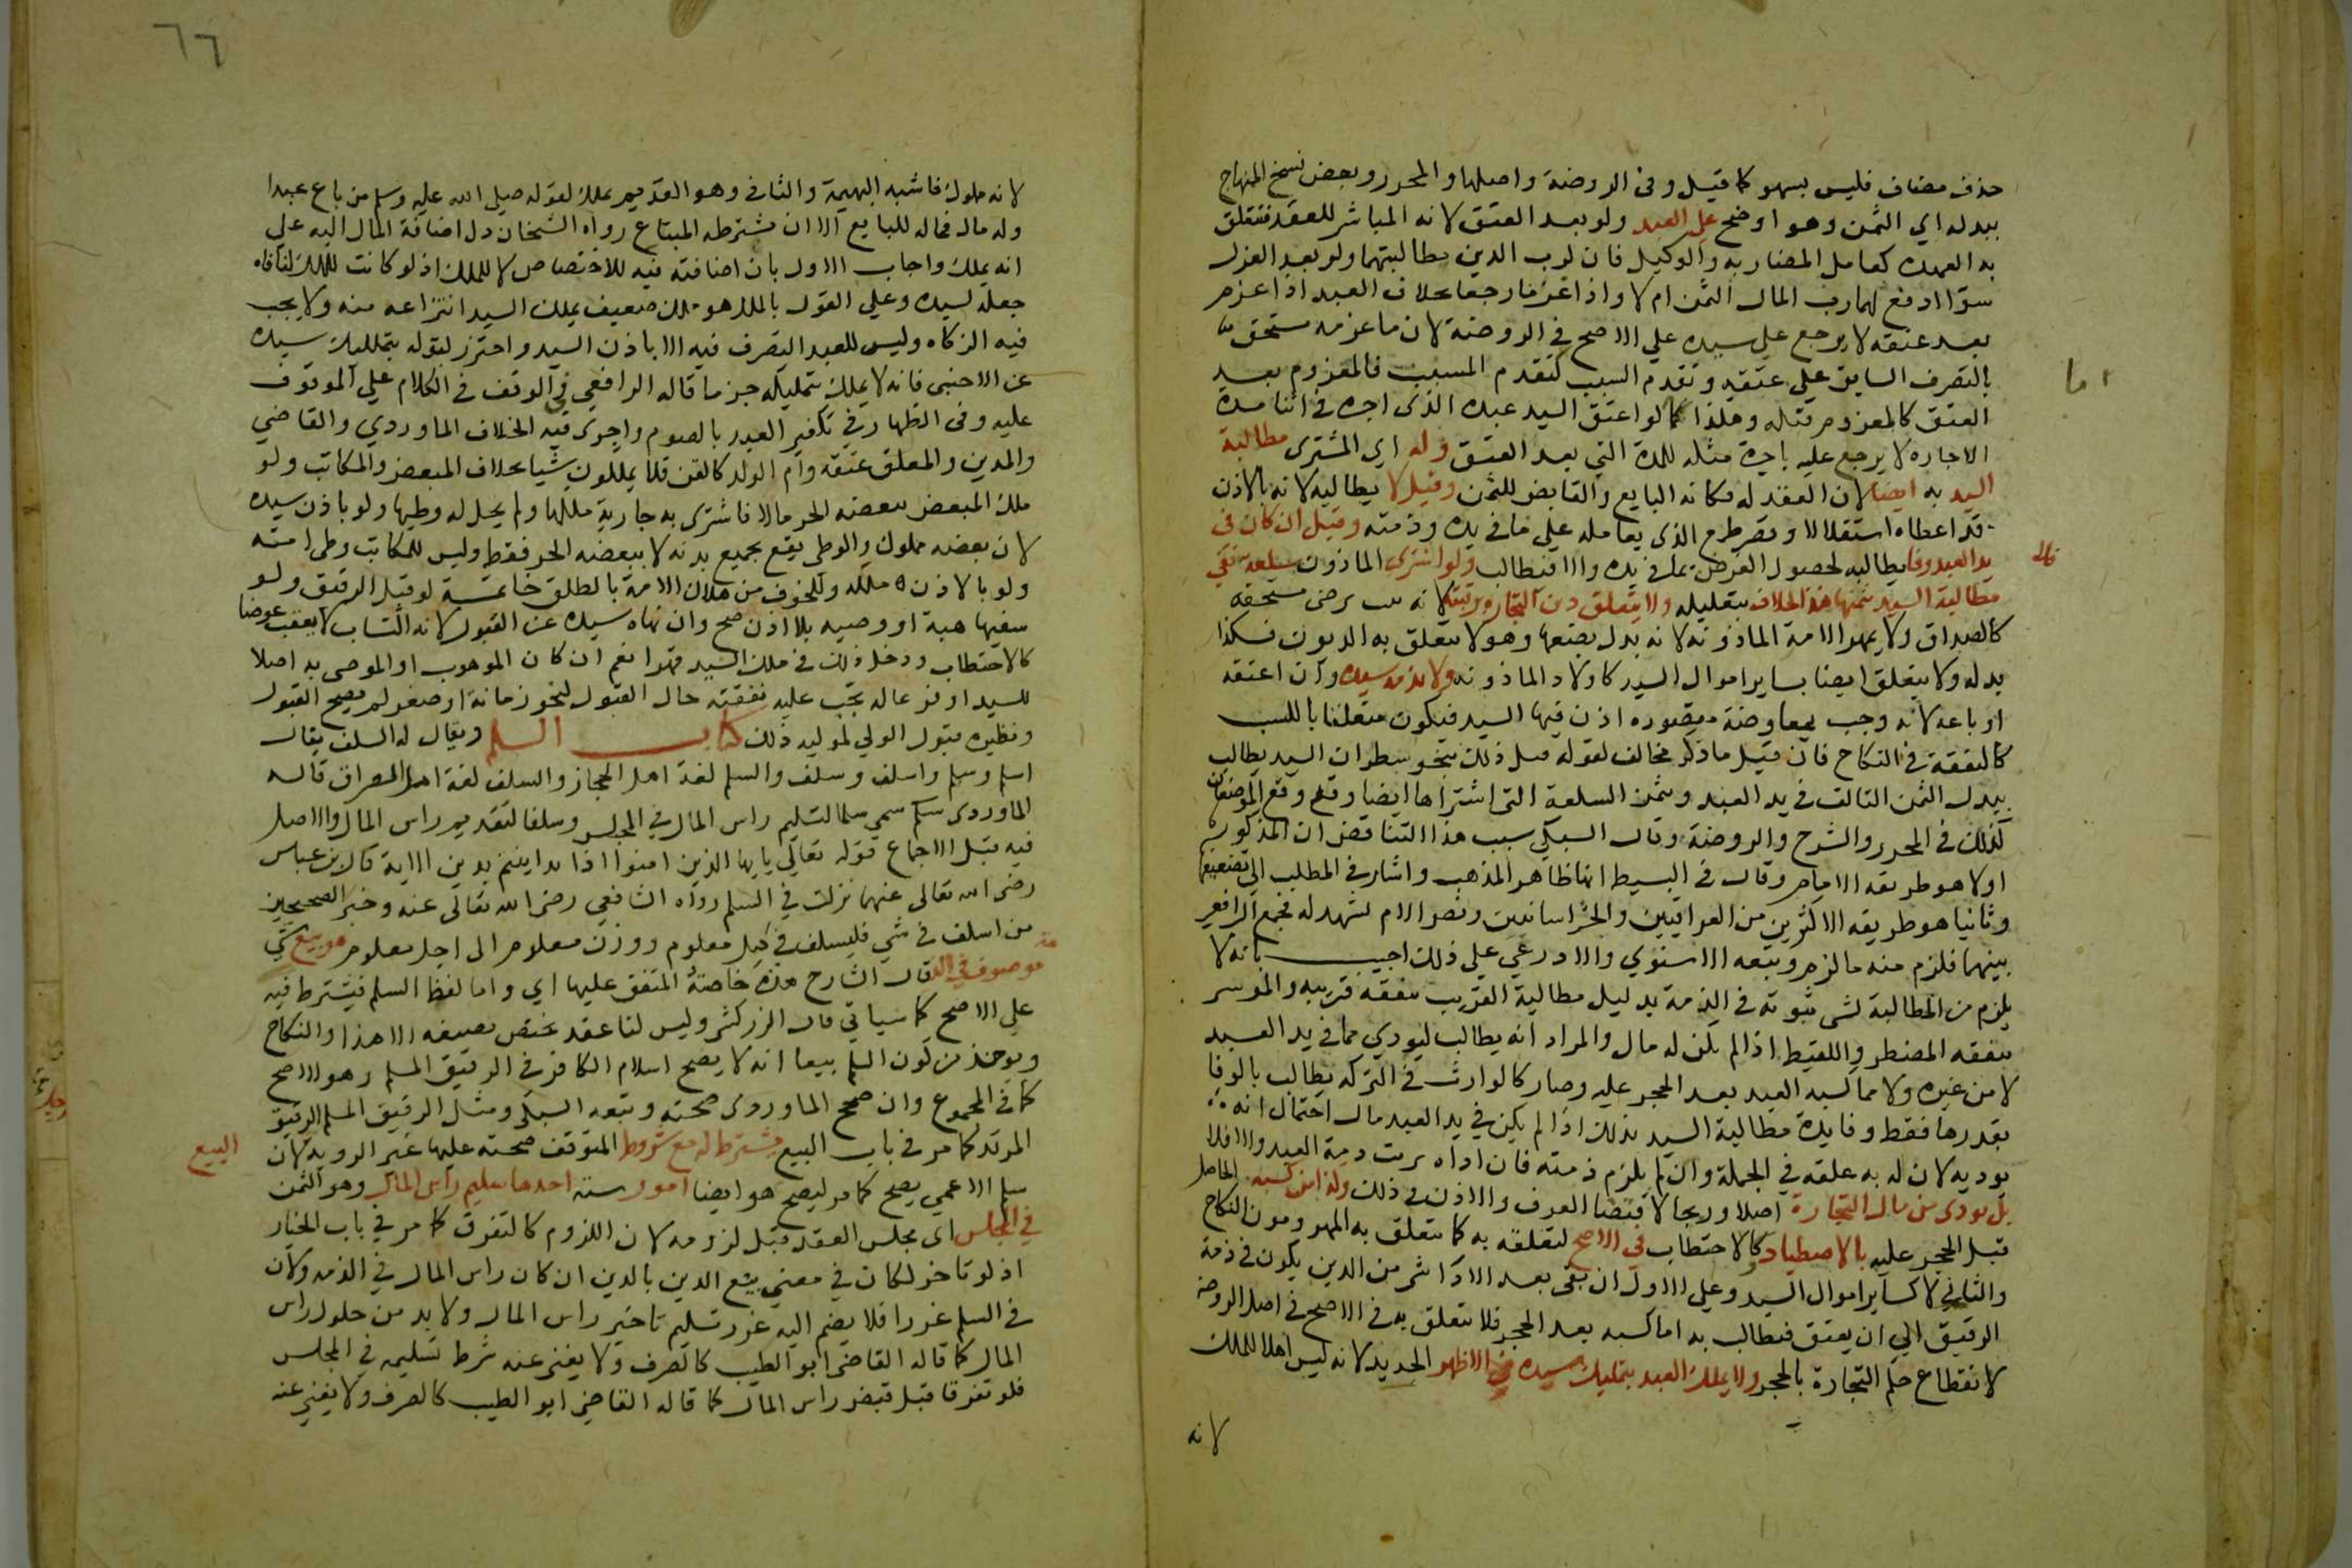 حذف مضاف فليس بسهو كما قيل وفى الروضة واصلها والمحرر وبعض نسخ المنهاج
ببدله اي الثمن وهو اوضح على العبد ولو بعد العتق لانه المباشر للعقد فتتعلق
به العهدة كعامل المضاربة والوكيل فان لرب الدين مطالبتهما ولو بعد العزل
سوا ادفع لهما رب المال الثمن ام لا واذا غرما رجعا بخلاف العبد اذا غرم
بعد عتقه لا يرجع على سيده علي الاصح في الروضة لان ما غرمه مستحق
بالتصرف السابق علي عتقه وتقدم السبب كتقدم المسبب فالمغروم بعد
العتق كالمغروم قبله وهذا كما لو اعتق السيد عبده الذى اجره في اثنا مدة
الاجارة لا يرجع عليه باجرة مثله للمدة التي بعد العتق وله اي المشترى مطالبة
السيد به ايضا لان العقد له فكانه البايع والقابض للثمن وقيل لا يطالبه لانه بالاذن
قد اعطاه استقلالا وقصر طمع الذى يعامله علي ما في يده وذمته وقيل ان كان في
يد العبد وفا يطالبه لحصول الغرض بما في يده والا فيطالب ولو اشترى الماذون سلعة ففي
مطالبة السيد بثمنها هذا الخلاف بتعليله ولا يتعلق دين التجارة برقبته لانه برضى مستحقه
كالصداق ولا بمهر الامة الماذونة لانه بدل بضعها وهو لا يتعلق به الديون فكذا
بدله ولا يتعلق ايضا بساير اموال السيد كاولاد الماذونة ولا بذمة سيده وان اعتقه
او باعه لانه وجب بمعاوضة مقصوده اذن فيها السيد فيكون متعلقا بالكسب
كالنفقة في النكاح فان قيل ما ذكر مخالف لقوله قبل ذلك بنحو سطر ان السيد يطالب
ببدل الثمن التالف في يد العبد وبثمن السلعة التى اشتراها ايضا وقد وقع الموضعان
كذلك في المحرر والشرح والروضة وقال السبكي سبب هذا التناقض ان المذكور
اولا هو طريقة الامام وقال في البسيط انها ظاهر المذهب واشار في المطلب الى تضعيفها
وثانيا هو طريقة الاكثرين من العراقيين والخراسانيين ونص الام يشهد له فجمع الرافعي
بينهما فلزم منه ما لزم وتبعه الاسنوي والاذرعي علي ذلك اجيب بانه لا
يلزم من المطالبة لشى ثبوته في الذمة بدليل مطالبة القريب بنفقة قريبه والموسر
بنفقة المضطر واللقيط اذا لم يكن له مال والمراد انه يطالب ليودي مما في يد العبد
لا من غيره ولا مما كسبه العبد بعد الحجر عليه وصار كالوارث في التركه يطالب بالوفا
بقدرها فقط وفايدة مطالبة السيد بذلك اذا لم يكن في يد العبد مال احتمال انه
يوديه لان له به علقة في الجملة وان لم يلزم ذمته فان اداه بريت ذمة العبد والا فلا
بل يودى من مال التجارة اصلا وربحا لاقتضا العرف والاذن في ذلك وكذا من كسبه الحاصل
قبل الحجر عليه بالاصطياد وكالاحتطاب في الاصح لتعلقه به كما يتعلق به المهر ومون النكاح
والثاني لا كساير اموال السيد وعلي الاول ان بقى بعد الادا شى من الدين يكون في ذمة
الرقيق الي ان يعتق فيطالب به اما كسبه بعد الحجر فلا يتعلق به في الاصح في اصل الروضة
لانقطاع حكم التجارة بالحجر ولا يملك العبد بتمليك سيده في الاظهر الجديد لانه ليس اهلا للملك
لانه
اما
قال
٦٦
لانه مملوك فاشبه البهيمة والثاني وهو القديم يملك لقوله صلى الله عليه وسلم من باع عبدا
وله مال فماله للبايع الا ان يشترطه المبتاع رواه الشيخان دل اضافة المال اليه علي
انه يملك واجاب الاول بان اضافته فيه للاختصاص لا للملك اذ لو كانت للملك لنافاه
جعله لسيده وعلي القول بالملك هو ملك ضعيف يملك السيد انتزاعه منه ولا يجب
فيه الزكاه وليس للعبد التصرف فيه الا باذن السيد واحترز بقوله بتمليك سيده
عن الاجنبى فانه لا يملك بتمليكه جزما قاله الرافعي في الوقف في الكلام علي الموقوف
عليه وفى الظهار في تكفير العبد بالصوم واجرى فيه الخلاف الماوردي والقاضي
والمدبر والمعلق عتقه وام الولد كالقن فلا يملكون شيا بخلاف المبعض والمكاتب ولو
ملك المبعض ببعضه الحر مالا فاشترى به جارية ملكها ولم يحل له وطيها ولو باذن سيده
لان بعضه مملوك والوطى يقع بجميع بدنه لا ببعضه الحر فقط وليس للمكاتب وطى امته
ولو بالاذن لضعف ملكه وللخوف من هلاك الامة بالطلق خاتمة لو قبل الرقيق ولو
سفيها هبة او وصية بلا اذن صح وان نهاه سيده عن القبول لانه اكتساب لا يعقب عوضا
كالاحتطاب ودخل ذلك في ملك السيد قهرا نعم ان كان الموهوب او الموصى به اصلا
للسيد او فرعا له تجب عليه نفقته حال القبول لنحو زمانة او صغر لم يصح القبول
ونظيره قبول الولي لموليه ذلك كتاب السلم ويقال له السلف يقال
اسلم وسلم واسلف وسلف والسلم لغة اهل الحجاز والسلف لغة اهل العراق قاله
الماوردى سمي سلما لتسليم راس المال في المجلس وسلفا لتقديم راس المال والاصل
فيه قبل الاجماع قوله تعالي يا يها الذين امنوا اذا تداينتم بدين الاية قال ابن عباس
رضى الله تعالى عنهما نزلت في السلم رواه الشافعي رضى الله تعالى عنه وخبر الصحيحين
من اسلف في شي فليسلف في كيل معلوم ووزن معلوم الى اجل معلوم هو بيع شي
موصوف في الذمة قال الشارح هذه خاصته المتفق عليها اي واما لفظ السلم فيشترط فيه
علي الاصح كما سياتي قال الزركشى وليس لنا عقد يختص بصيغه الا هذا والنكاح
ويوخذ من كون السلم بيعا انه لا يصح اسلام الكافر في الرقيق المسلم وهو الاصح
كما في المجموع وان صحح الماوردى صحته وتبعه السبكي ومثل الرقيق المسلم الرقيق
المرتد كما مر في باب البيع يشترط له مع شروط المتوقف صحته عليها غير الروية لان
البيع
سلم الاعمي يصح كما مر ليصح هو ايضا امور سته احدها تسليم راس المال وهو الثمن
في المجلس اى مجلس العقد قبل لزومه لان اللزوم كالتفرق كما مر في باب الخيار
اذ لو تاخر لكان في معني بيع الدين بالدين ان كان راس المال في الذمه ولان
في السلم غررا فلا يضم اليه غرر تسليم تاخير راس المال ولا بد من حلول راس
المال كما قاله القاضى ابو الطيب كالصرف ولا يغنى عنه شرط تسليمه في المجلس
فلو تفرقا قبل قبض راس المال كما قاله القاضى ابو الطيب كالصرف ولا يغنى عنه